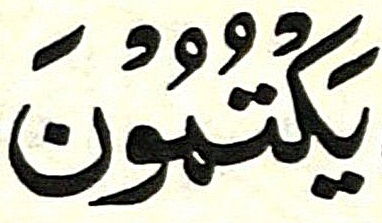 يَكْتُمُوْنَ